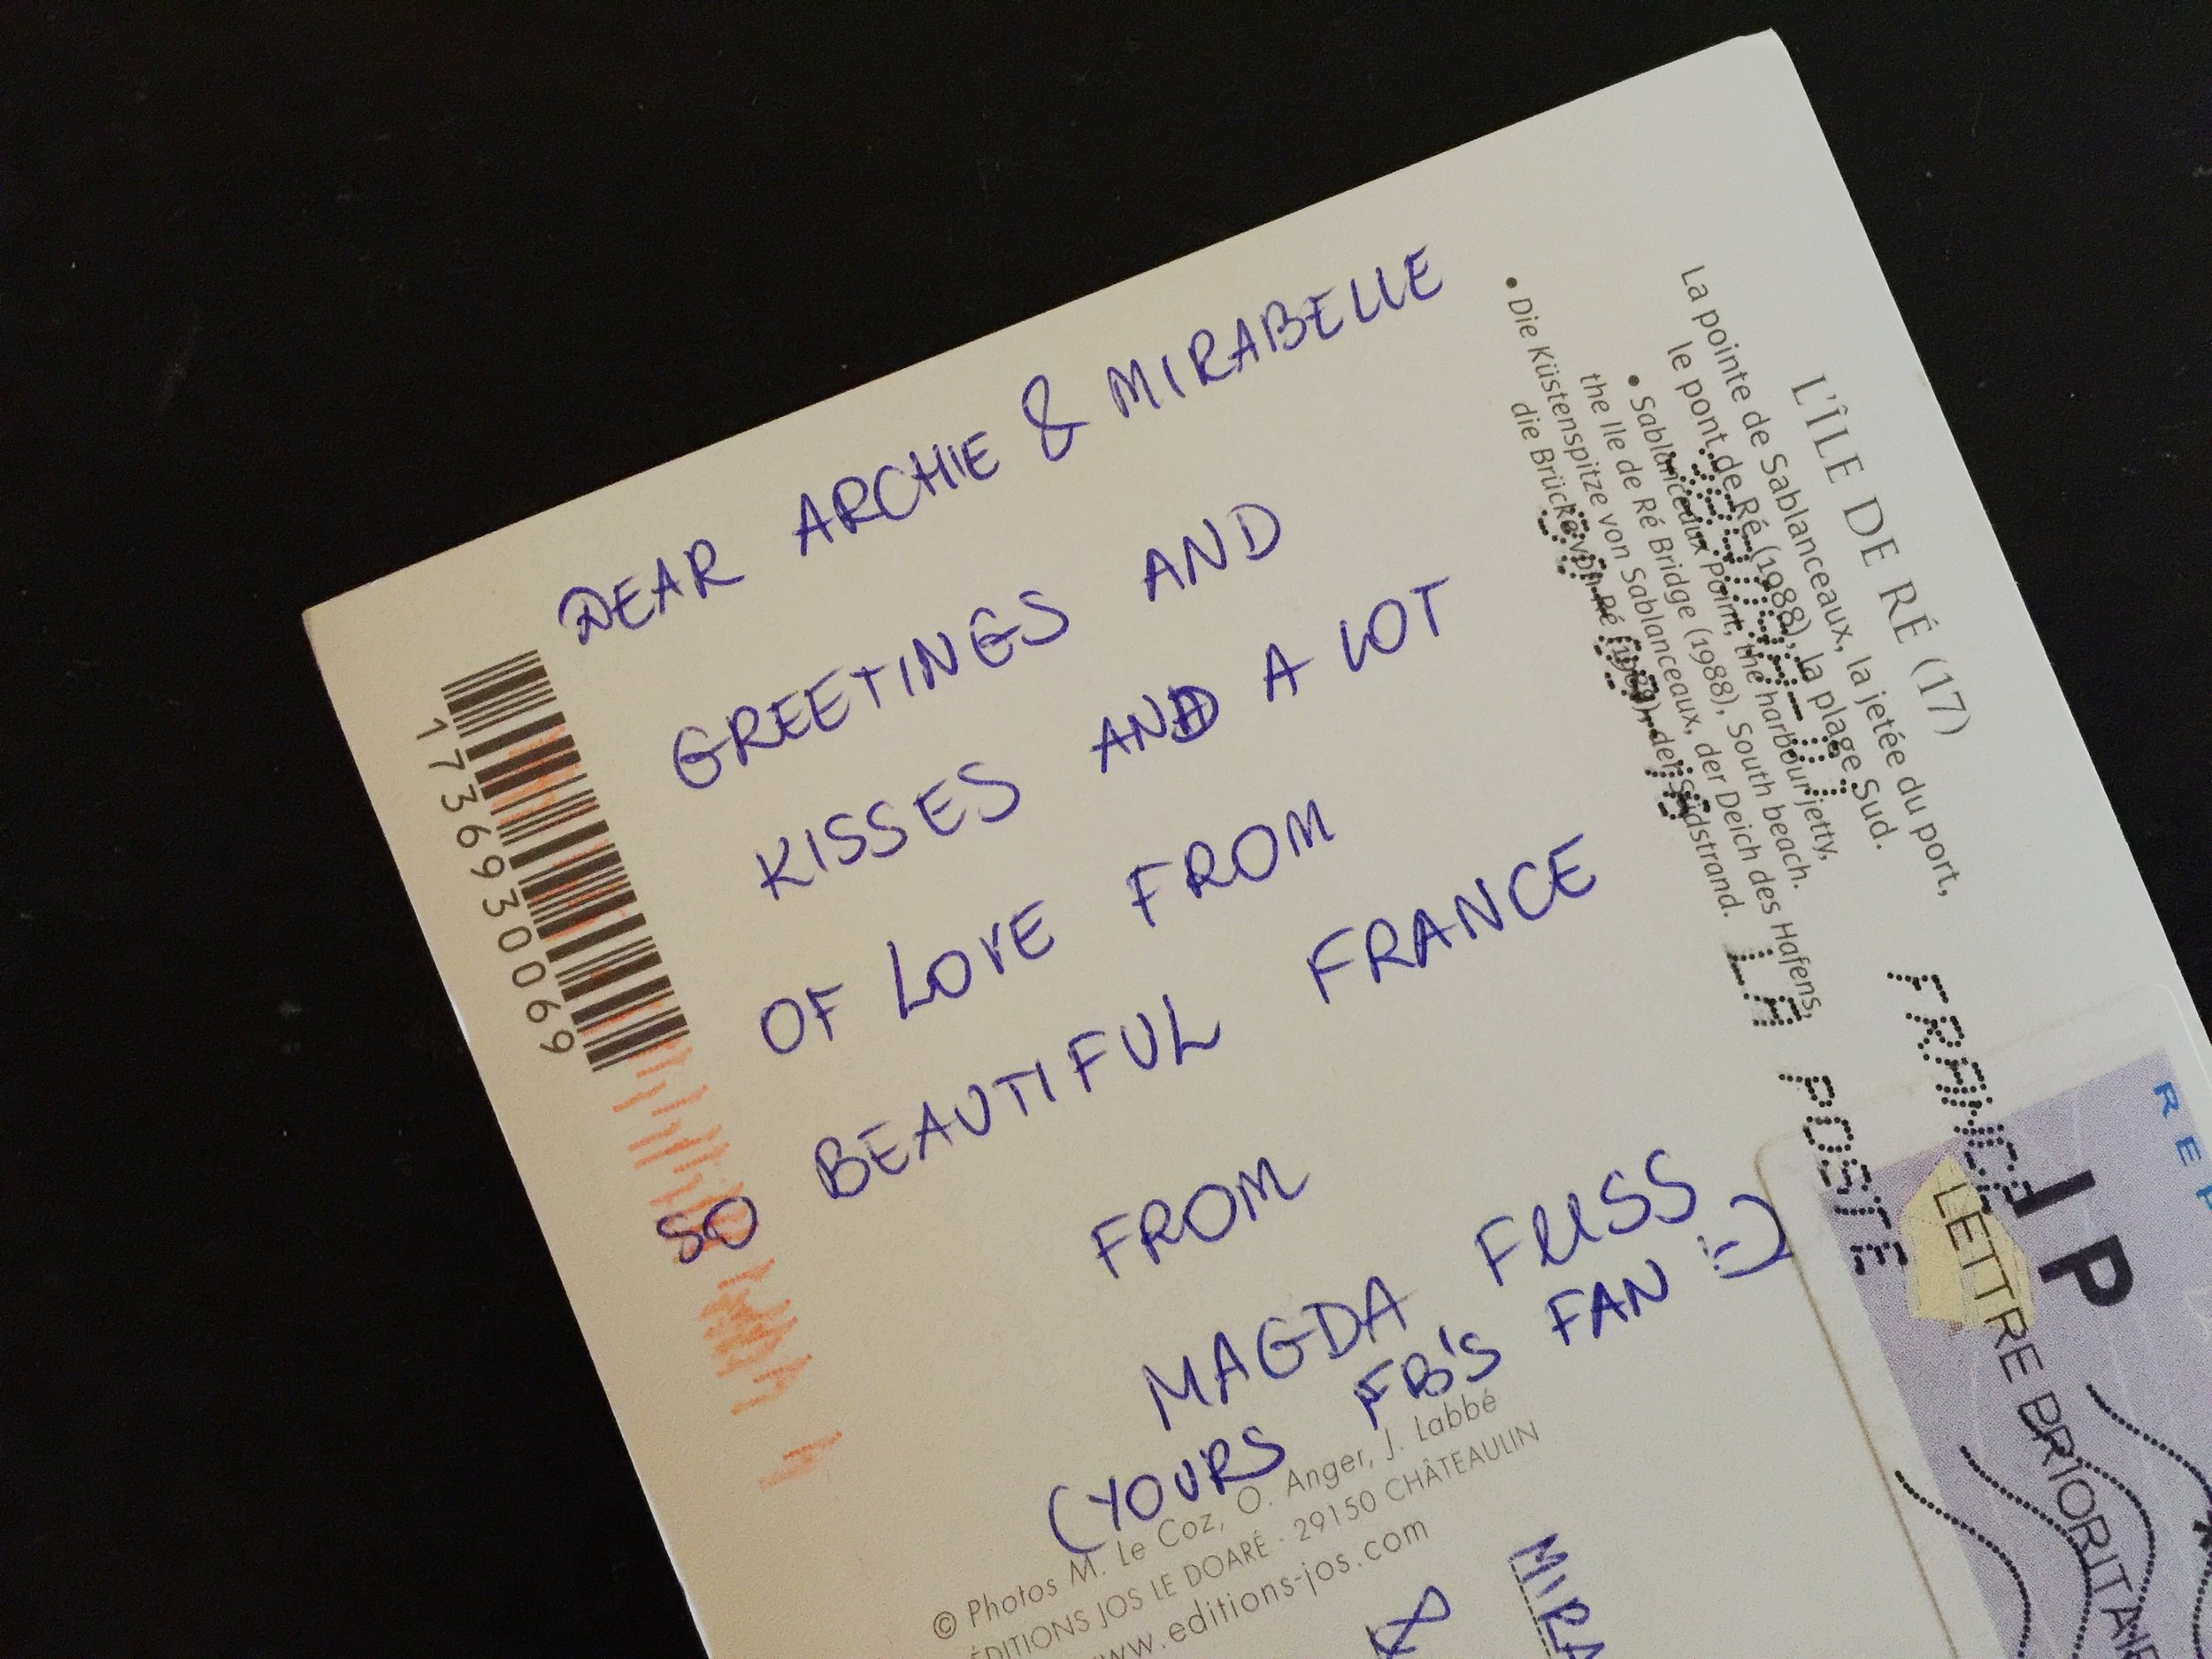 DEAR ARCHIE & MIRABELLE
GREETINGS AND
KISSES AND A LOT
OF LOVE FROM
SO BEAUTIFUL FRANCE
FROM
MAGDA FUSS
(YOURS FB'S FAN :-)
1736930069
L'ÎLE DE RÉ (17)
La pointe de Sablanceaux, la jetée du port,
le pont de Ré (1988), la plage Sud.
• Sablanceaux Point, the harbour jetty,
the Ile de Ré Bridge (1988), South beach.
• Die Küstenspitze von Sablanceaux, der Deich des Hafens,
die Brücke von Ré (1988), der Südstrand.
LA POSTE
FRANCE
IP
LETTRE PRIORITAIRE
© Photos M. Le Coz, O. Anger, J. Labbé
ÉDITIONS JOS LE DOARÉ · 29150 CHÂTEAULIN
www.editions-jos.com
&